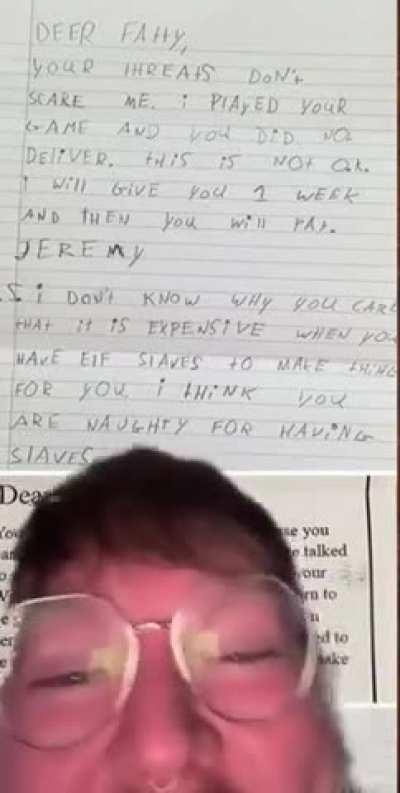 DEER FAttY,
YOUR tHREAtS DoN't
SCARE ME. i PlAYED YouR
GAME AND you DiD NOt
DELiVER. tHiS iS NOt Ok.
i Will GiVE you 1 WEEK
AND tHEN you will PAY.
JEREMY
.S i DoN't KNOW WHY you CARE
tHAt it iS EXPENSiVE WHEN YOU
HAVE ElF SlAVES tO MAKE tHiNG
FOR YOU. i tHiNK you
ARE NAUGHtY FOR HAViNG
SlAVES
Dea
You se you
an e talked
your
rn to
e n
er ed to
e